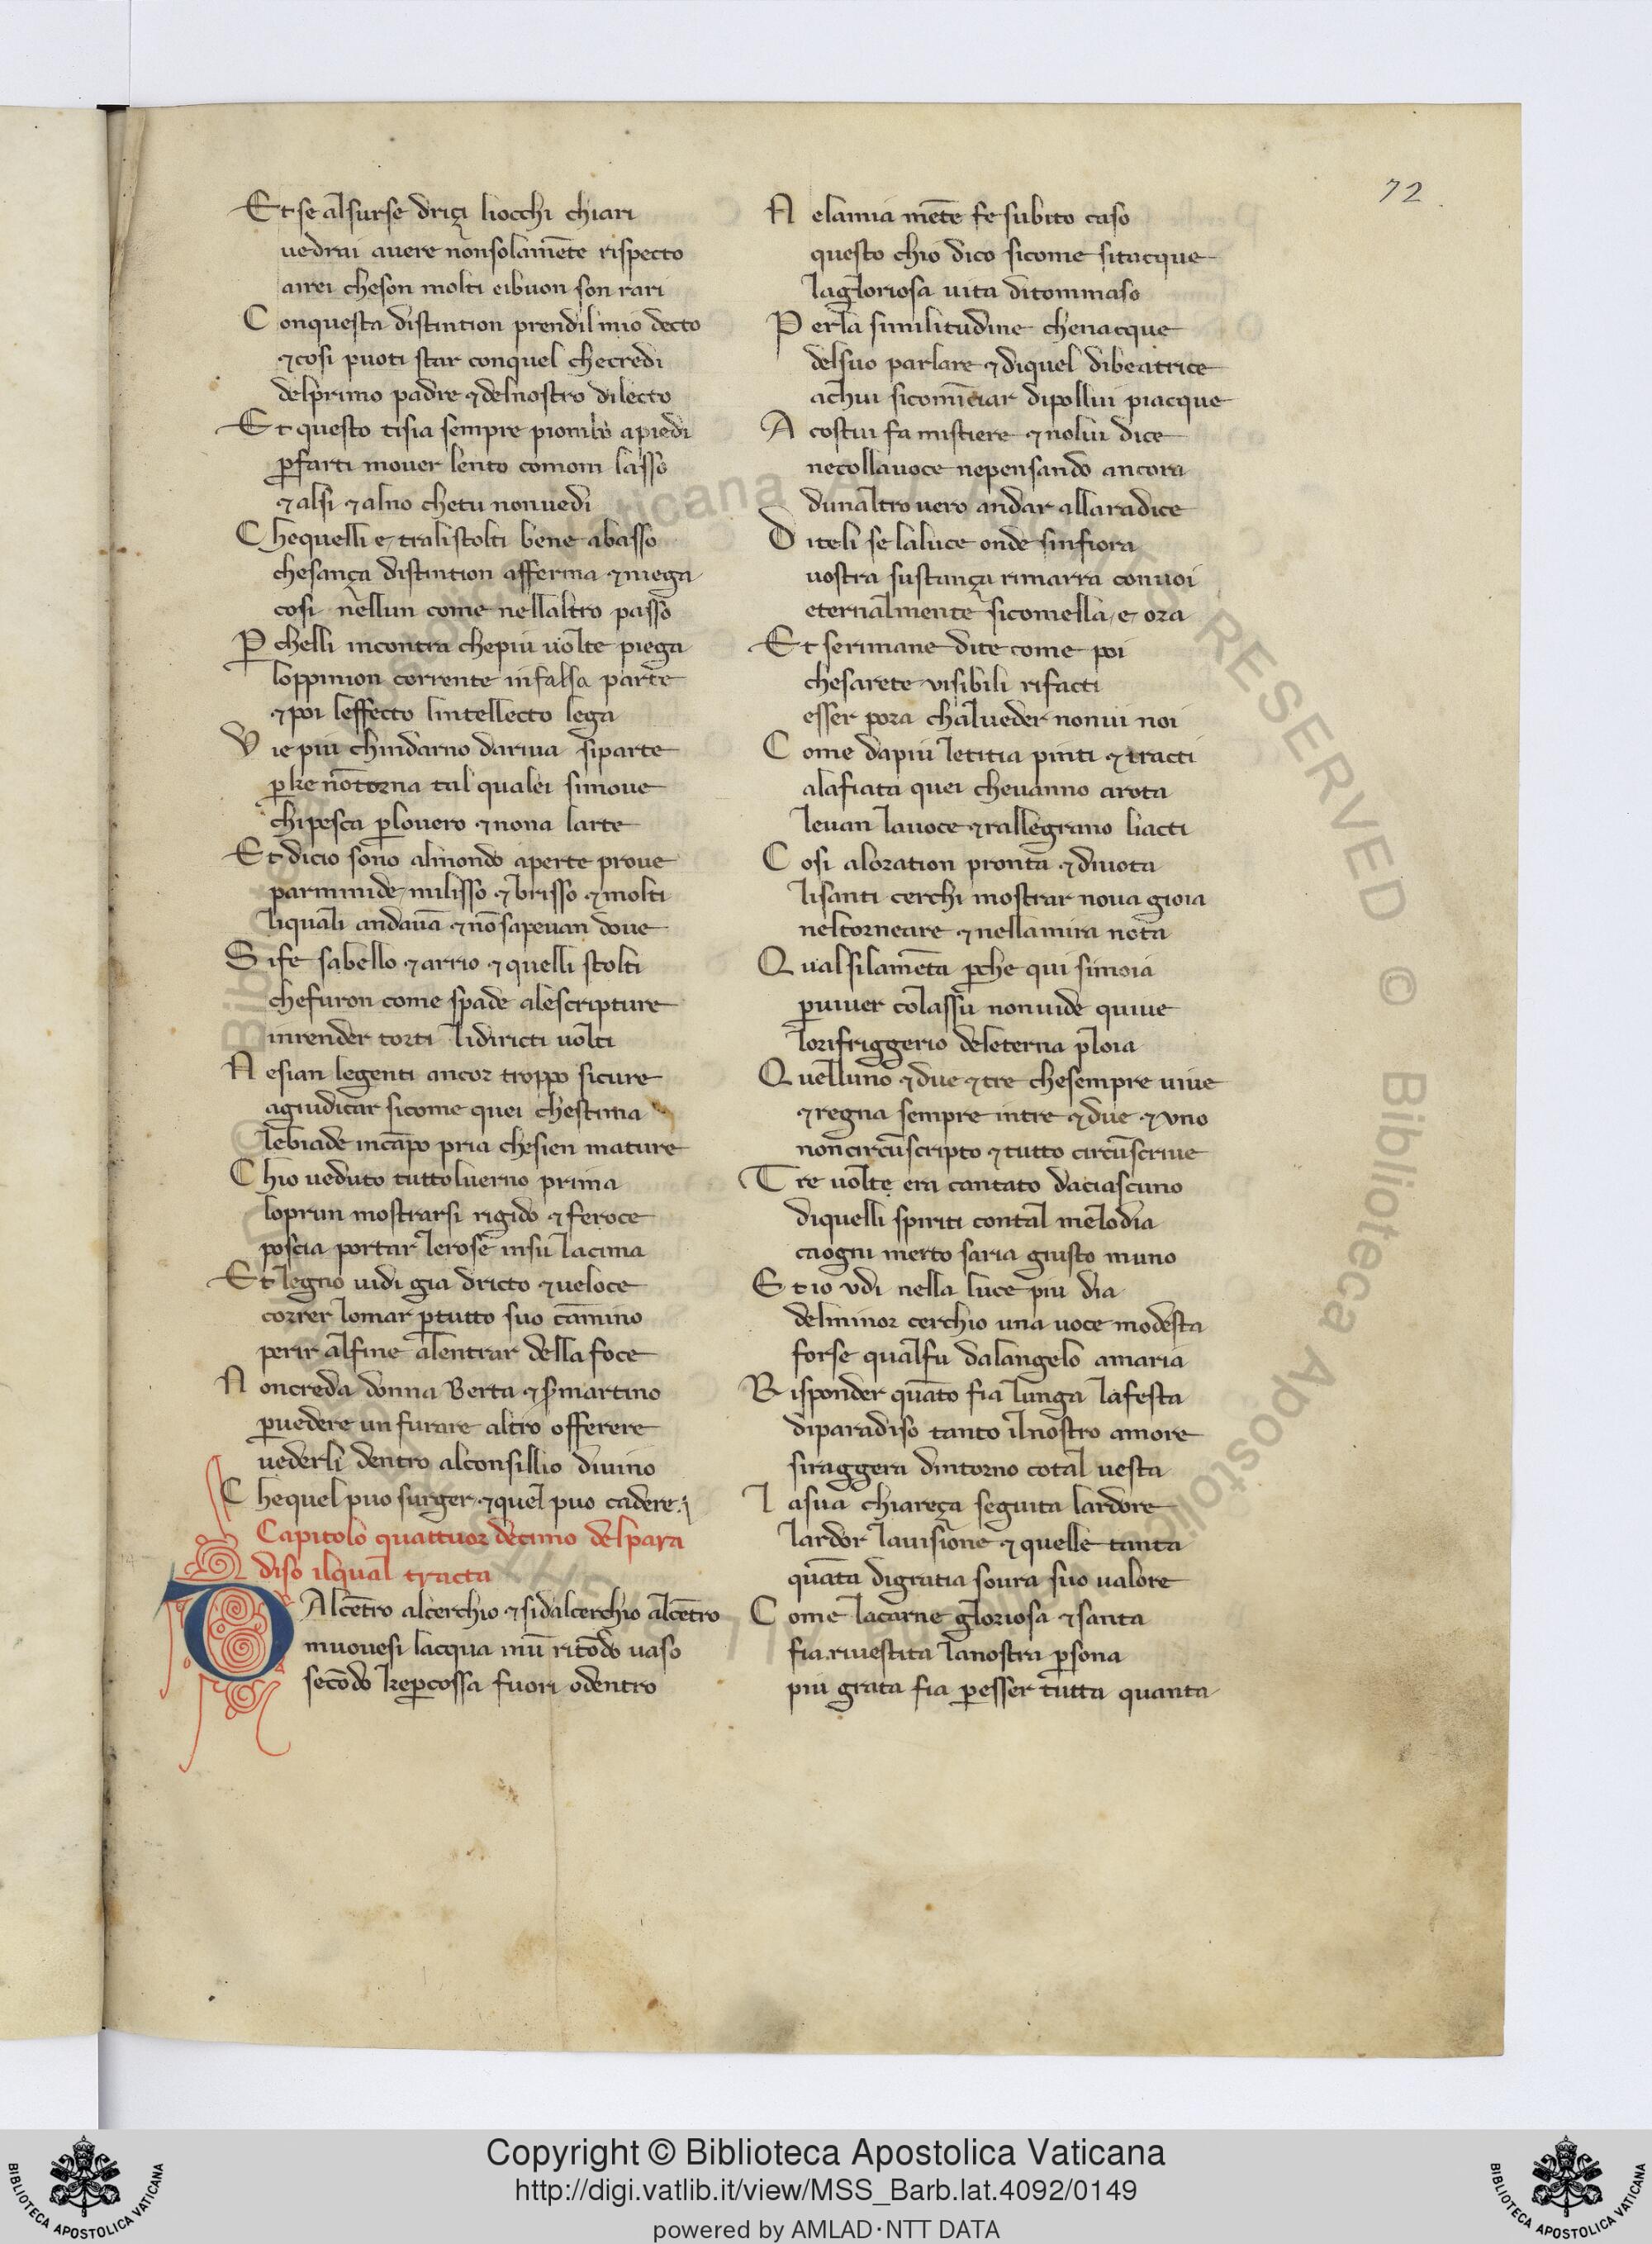 72
Et se alsurse driçi liocchi chiari
uedrai auere nonsolamēte rispecto
airei cheson molti eibuon son rari
Conquesta distintion prendil mio decto
⁊cosi puoti star conquel checredi
delprimo padre ⁊delnostro dilecto
Et questo tisia sempre piombo apiedi
ꝑfarti mouer lento comom lasso
⁊alsi ⁊alno chetu nonuedi
Chequelli e tralistolti bene abasso
chesança distintion afferma ⁊niega
cosi nellun come nellaltro passo
Ꝑchelli incontra chepiu uolte piega
loppinion corrente infalsa parte
⁊poi leffecto lintellecto lega
Vie piu chindarno dariua siparte
ꝑke nōtorna tal qualei simoue
chipesca ꝑlouero ⁊nona larte
Et dicio sono almondo aperte proue
parminide milisso ⁊brisso ⁊molti
liquali andauā ⁊nōsapeuan doue
Sife sabello ⁊arrio ⁊quelli stolti
chefuron come spade alescripture
inrender torti lidiricti uolti
Nesian legenti ancor troppo sicure
agiudicar sicome quei chestima
lebiade incāpo pria chesien mature
Chio ueduto tuttoluerno prima
loprun mostrarsi rigido ⁊feroce
poscia portar lerose insu lacima
Et legno uidi gia dricto ⁊ueloce
correr lomar ꝑtutto suo cāmino
perir alfine alentrar della foce
Noncreda donna Berta ⁊ s̄ martino
ꝑuedere un furare altro offerere
uederli dentro alconsillio diuino
Chequel puo surger ⁊quel puo cadere.
Capitolo quattuor decimo delpara
diso ilqual tracta
DAlcētro alcerchio ⁊sidalcerchio alcētro
muouesi lacqua inū ritōdo uaso
secōdo keꝑcossa fuori odentro
Nelamia mēte fe subito caso
questo chio dico sicome sitacque
lagloriosa uita ditommaso
Perla similitudine chenacque
delsuo parlare ⁊diquel dibeatrice
achui sicomīciar dipollui piacque
Acostui fa mistiere ⁊nolui dice
necollauoce nepensando ancora
dunaltrouero andar allaradice
Diteli se laluce onde sinfiora
uostra sustança rimarra conuoi
eternalmente sicomella e ora
Et serimane dite come poi
chesarete visibili rifacti
esser pora chalueder nonui noi
Come dapiu letitia pinti ⁊tracti
alafiata quei cheuanno arota
leuan lauoce ⁊rallegrano liacti
Cosi aloration pronta ⁊diuota
lisanti cerchi mostrar noua gioia
neltorneare ⁊nellamira nota
Qualsilamēta ꝑche qui simoia
ꝑuiuer colassu nonuide quiue
lorifriggerio deleterna ploia
Quelluno ⁊due ⁊tre chesempre uiue
⁊regna sempre intre ⁊due ⁊vno
noncircūscripto ⁊tutto circūscriue
Tre uolte era cantato daciascuno
diquelli spiriti contal melodia
caogni merto saria giusto muno
Et io vdi nella luce piu dia
delminor cerchio una uoce modesta
forse qualfu dalangelo amaria
Risponder quāto fia lunga lafesta
diparadiso tanto ilnostro amore
siraggera dintorno cotal uesta
Lasua chiareça seguita lardore
lardor lauisione ⁊quelle tanta
quāta digratia soura suo ualore
Come lacarne gloriosa ⁊santa
fia riuestita lanostra ꝑsona
piu grata fia ꝑesser tutta quanta
Copyright © Biblioteca Apostolica Vaticana
http://digi.vatlib.it/view/MSS_Barb.lat.4092/0149
powered by AMLAD·NTT DATA
BIBLIOTECA APOSTOLICA VATICANA
BIBLIOTECA APOSTOLICA VATICANA